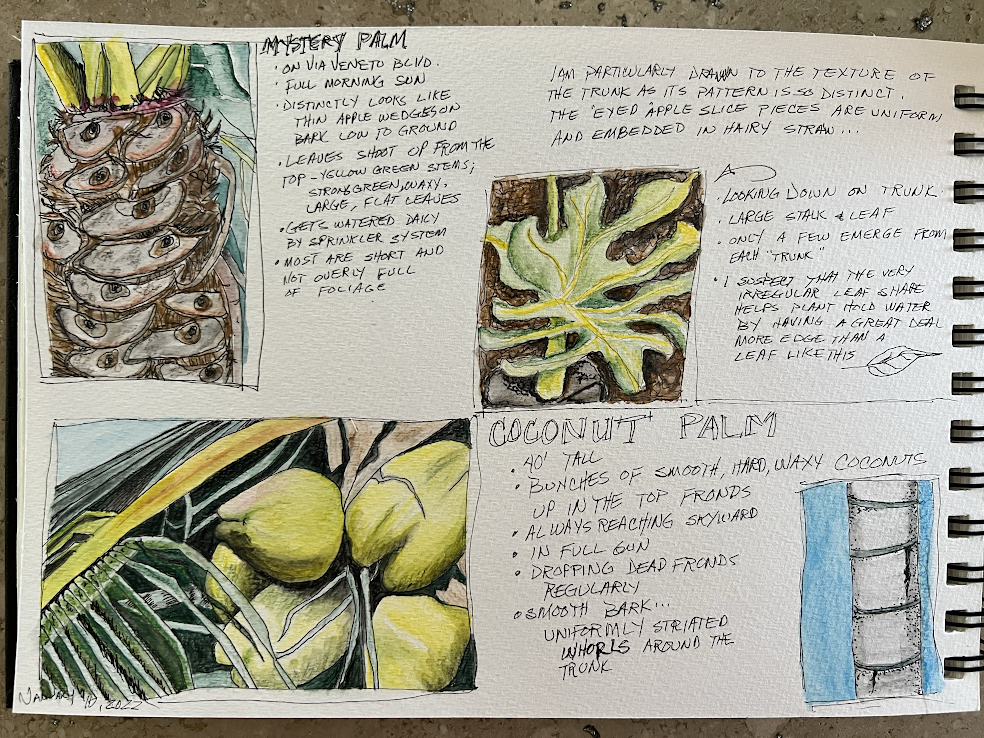 MYSTERY PALM
• ON VIA VENETO BLVD.
• FULL MORNING SUN
• DISTINCTLY LOOKS LIKE
THIN APPLE WEDGES ON
BARK LOW TO GROUND
• LEAVES SHOOT UP FROM THE
TOP - YELLOW GREEN STEMS;
STRONG GREEN, WAXY,
LARGE, FLAT LEAVES
• GETS WATERED DAILY
BY SPRINKLER SYSTEM
• MOST ARE SHORT AND
NOT OVERLY FULL
OF FOLIAGE
I AM PARTICULARLY DRAWN TO THE TEXTURE OF
THE TRUNK AS ITS PATTERN IS SO DISTINCT.
THE "EYED" APPLE SLICE PIECES ARE UNIFORM
AND EMBEDDED IN HAIRY STRAW...
• LOOKING DOWN ON TRUNK
• LARGE STALK & LEAF
• ONLY A FEW EMERGE FROM
EACH "TRUNK"
• I SUSPECT THAT THE VERY
IRREGULAR LEAF SHAPE
HELPS PLANT HOLD WATER
BY HAVING A GREAT DEAL
MORE EDGE THAN A
LEAF LIKE THIS
COCONUT PALM
• 40' TALL
• BUNCHES OF SMOOTH, HARD, WAXY COCONUTS
UP IN THE TOP FRONDS
• ALWAYS REACHING SKYWARD
• IN FULL SUN
• DROPPING DEAD FRONDS
REGULARLY
• SMOOTH BARK...
UNIFORMLY STRIATED
WHORLS AROUND THE
TRUNK
JANUARY 10, 2022